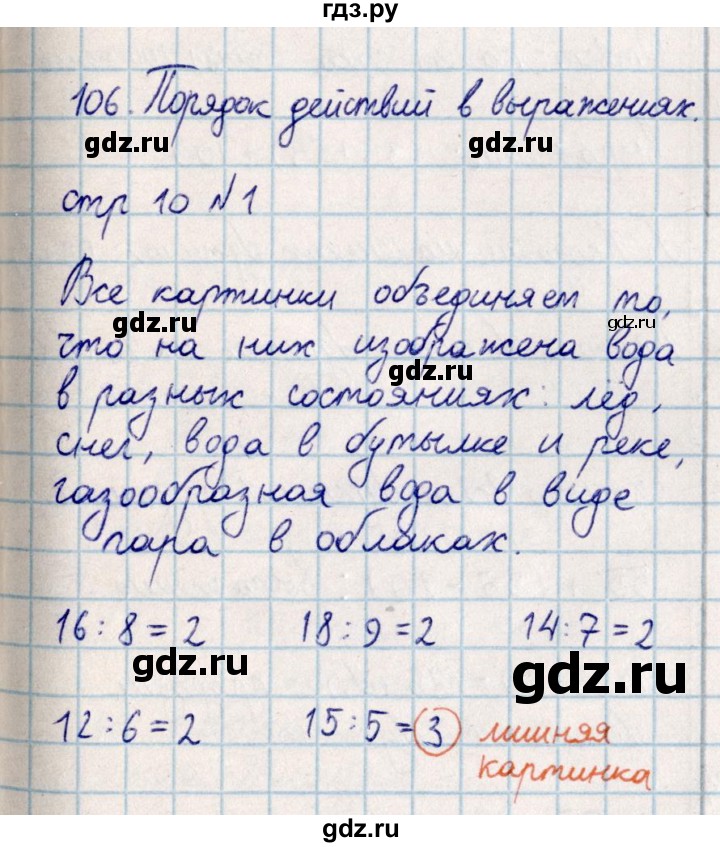 гдз.ру
106. Порядок действий в выражениях.
gdz.ru gdz.ru
стр 10 №1
Все картинки объединяет то,
gdz.ru gdz.ru
что на них изображена вода
gdz.ru
в разных состояниях: лёд,
снег, вода в бутылке и реке,
газообразная вода в виде
пара в облаках.
16:8=2 18:9=2 14:7=2
gdz.ru gdz.ru
12:6=2 15:5=3 лишняя
картинка
gdz.ru
gdz.ru